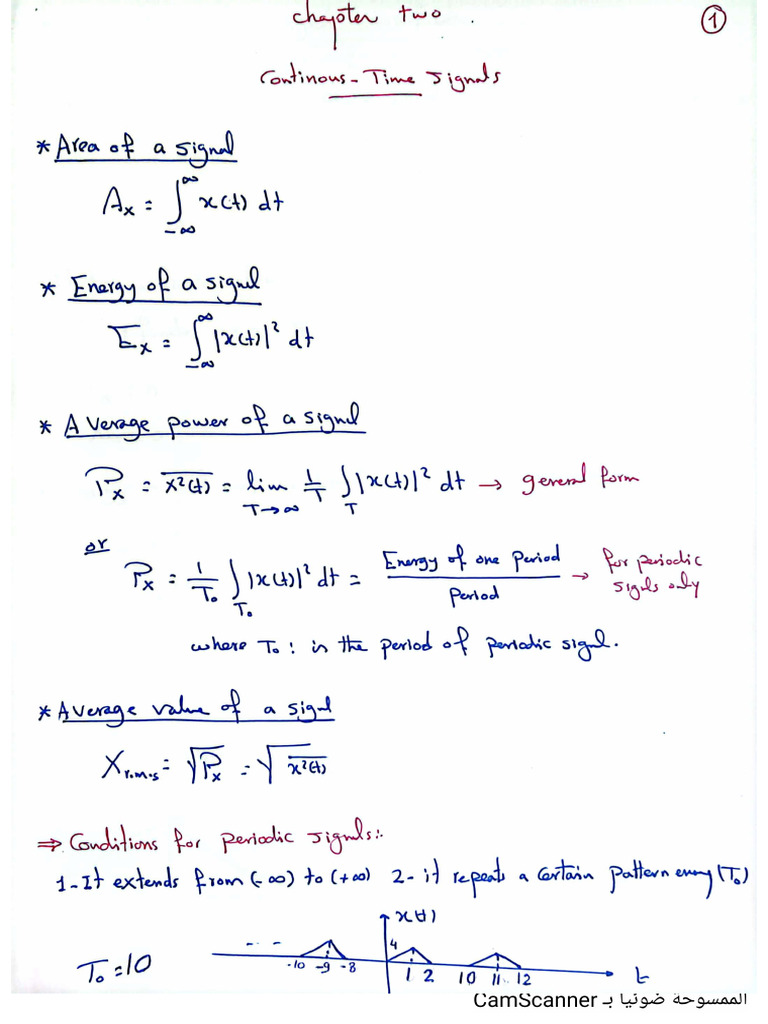 chapter two .
1
Continous - Time signals
* Area of a signal
Ax = ∫_{-∞}^{∞} x(t) dt
* Energy of a signal
Ex = ∫_{-∞}^{∞} |x(t)|² dt
* Average power of a signal
Px = \overline{x²(t)} = lim_{T→∞} 1/T ∫_T |x(t)|² dt → general form
or
Px = 1/T₀ ∫_{T₀} |x(t)|² dt = Energy of one Period / Period → for periodic signls only
where T₀ : is the period of periodic signal.
* Average value of a signl
Xr.m.s = √Px = √\overline{x²(t)}
⇒ Conditions for periodic signals:-
1- It extends from (-∞) to (+∞) 2- it repeats a certain pattern every (T₀)
x(t)
4
T₀ = 10
- - -
-10 -9 -8 1 2 10 11 12 t
الممسوحة ضوئيا بـ CamScanner